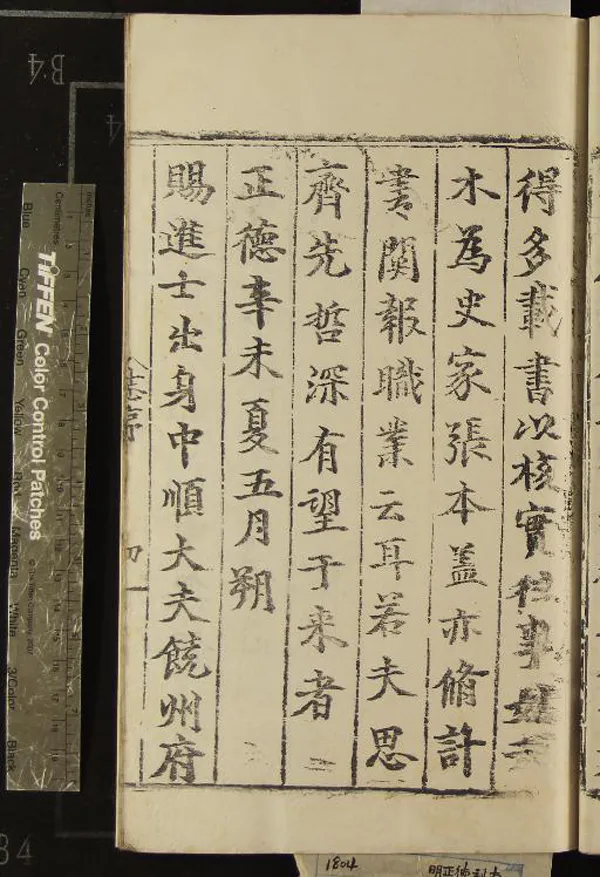 得多載書以核實往事
木為史家張本蓋亦脩計
書関報職業云耳若夫思
齊先哲深有望于来者
正德辛未夏五月朔
賜進士出身中順大夫饒州府
志序
B4
TIFFEN Color Control Patches
Inches
Centimetres
Blue
Cyan
Green
Yellow
Magenta
White
3/Color
Black
B4
1804
明正德